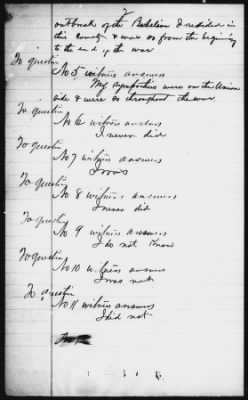 2
outbreak of the Rebellion & resided in
this County & was so from the beginning
to the end of the war
To question
No 5 witness answers
My sympathies were on the Union
side & were so throughout the war
To question
No 6 witness answers
I never did
To question
No 7 witness answers
I was
To question
No 8 witness answers
I never did
To question
No 9 witness answers
I do not know
To question
No 10 witness answers
I was not
To question
No 11 witness answers
I did not